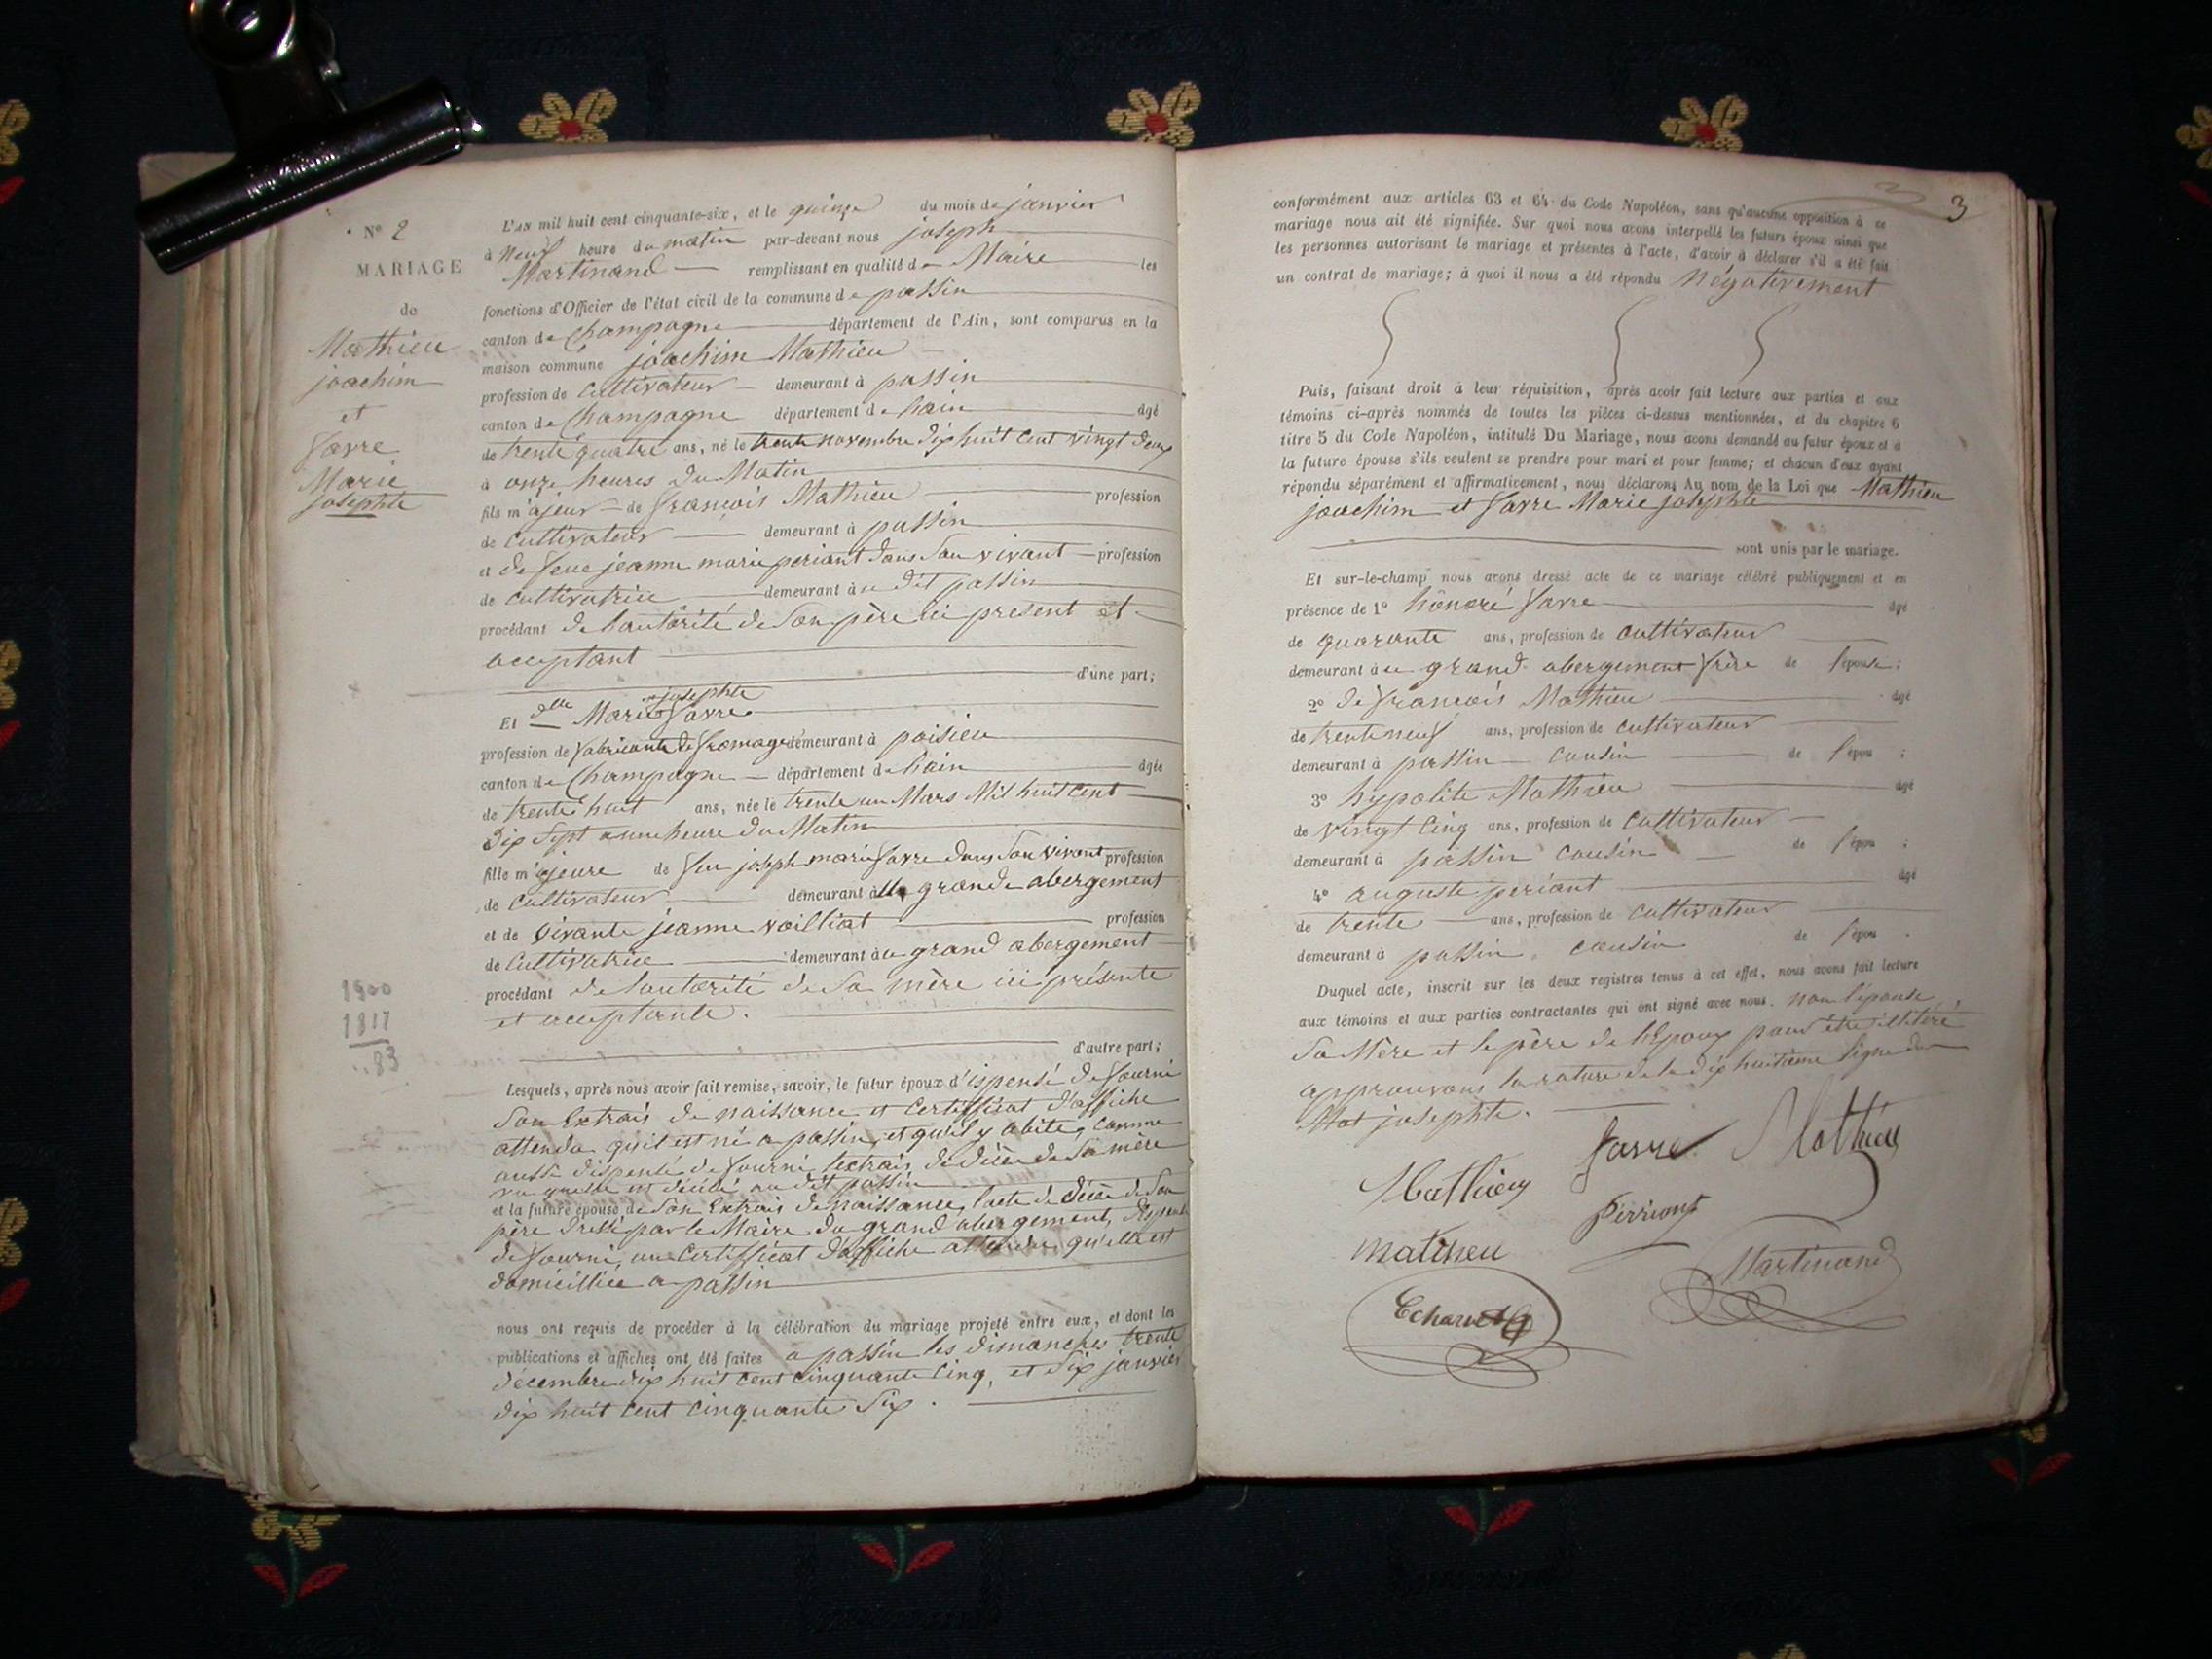 N° 2
MARIAGE
de
Mathieu
joachim
et
Favre
Marie
josephte
1900
1817
..83
L'AN mil huit cent cinquante-six, et le quinze du mois de janvier
à neuf heure du matin par-devant nous joseph
Martinand remplissant en qualité de Maire les
fonctions d'Officier de l'état civil de la commune de passin
canton de Champagne département de l'Ain, sont comparus en la
maison commune joachim Mathieu
profession de cultivateur demeurant à passin
canton de Champagne département de lain âgé
de trente quatre ans, né le trente novembre dix huit cent vingt deux
à onze heures du Matin
fils majeur de françois Mathieu profession
de cultivateur demeurant à passin
et de feue jeanne marie periant dans son vivant profession
de cultivatrice demeurant au dit passin
procédant de lautôrité de son père ici present et
acceptant
d'une part;
Et dlle Marie josephte Favre
profession de fabricante de fromage demeurant à poisieu
canton de Champagne département de lain âgée
de trente huit ans, née le trente un Mars Mil huit cent
dix sept a une heure du Matin
fille majeure de feu joseph marie favre dans son vivant profession
de cultivateur demeurant à grand abergement
et de vivante jeanne voilliat profession
de cultivatrice demeurant au grand abergement
procédant de lautorité de sa mère ici présente
et acceptante.
d'autre part;
Lesquels, après nous avoir fait remise, savoir, le futur époux dispensé de fourni
son Extrais de naissance et certifficat d'affiche
attendu qu'il est né a passin, et qu'il y abite, comme
aussi dispensé de fourni lextrais de décès de sa mère
vu quelle est décédé au dit passin
et la future épouse de son Extrais de naissance, lacte de décès de son
père dressé par le Maire du grand abergement, dispensé
de fourni un certifficat d'affiche attendu qu'elle est
domicilliée a passin
nous ont requis de procéder à la célébration du mariage projeté entre eux, et dont les
publications et affiches ont été faites a passin les dimanches trente
décembre dix huit cent cinquante cinq, et six janvier
dix huit cent cinquante six.
3
conformément aux articles 63 et 64 du Code Napoléon, sans qu'aucune opposition à ce
mariage nous ait été signifiée. Sur quoi nous avons interpellé les futurs époux ainsi que
les personnes autorisant le mariage et présentes à l'acte, d'avoir à déclarer s'il a été fait
un contrat de mariage; à quoi il nous a été répondu Négativement
Puis, faisant droit à leur réquisition, après avoir fait lecture aux parties et aux
témoins ci-après nommés de toutes les pièces ci-dessus mentionnées, et du chapitre 6
titre 5 du Code Napoléon, intitulé Du Mariage, nous avons demandé au futur époux et à
la future épouse s'ils veulent se prendre pour mari et pour femme; et chacun d'eux ayant
répondu séparément et affirmativement, nous déclarons Au nom de la Loi que Mathieu
joachim et Favre Marie josephte
sont unis par le mariage.
Et sur-le-champ nous avons dressé acte de ce mariage célébré publiquement et en
présence de 1° hônoré favre âgé
de quarante ans, profession de cultivateur
demeurant au grand abergement frère de l'épouse;
2° de françois Mathieu âgé
de trente neuf ans, profession de cultivateur
demeurant à passin cousin de l'épou ;
3° hypolite Mathieu âgé
de vingt cinq ans, profession de cultivateur
demeurant à passin cousin de l'épou ;
4° auguste periant âgé
de trente ans, profession de cultivateur
demeurant à passin, cousin de l'épou .
Duquel acte, inscrit sur les deux registres tenus à cet effet, nous avons fait lecture
aux témoins et aux parties contractantes qui ont signé avec nous. non l'épouse,
sa Mère et le père de lépoux pour être illitéré
approuvons la rature de la dix huitième ligne du
Mot josephte.
Favre Mathieu
Mathieu
Perriant
Mathieu
Martinand